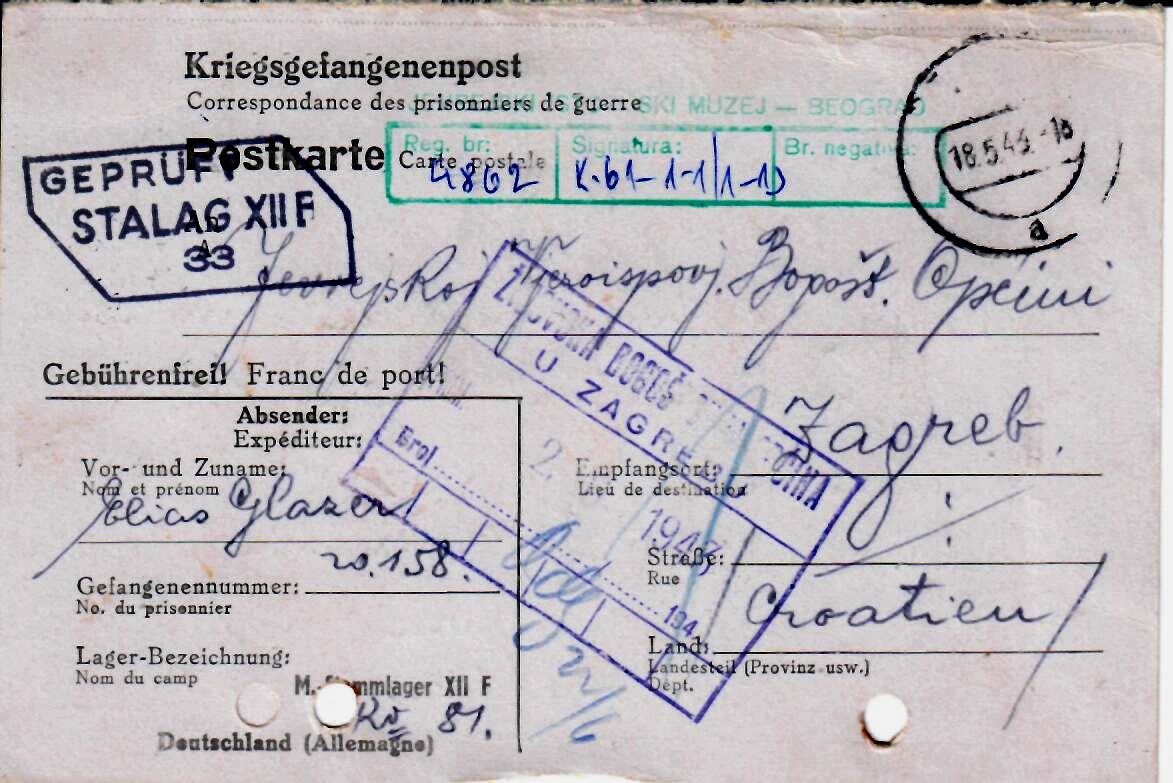 Kriegsgefangenenpost
Correspondance des prisonniers de guerre
MUZEJ — BEOGRAD
Postkarte Carte postale
Reg. br: Signatura: Br. negativa:
4862 K-61-1-1/1-1)
18.5.43.-18
a
GEPRÜFT
STALAG XII F
33
An
Jevrejskoj Bogošt. Općini
Gebührenfrei! Franc de port!
U ZAGREBU
Broj
2.
1943
194
Zagreb.
Empfangsort:
Lieu de destination
Straße:
Rue
Croatien
Land:
Landesteil (Provinz usw.)
Dépt.
Absender:
Expéditeur:
Vor- und Zuname:
Nom et prénom
Elias Glazer
20.158.
Gefangenennummer:
No. du prisonnier
Lager-Bezeichnung:
Nom du camp
M.-Stammlager XII F
81.
Deutschland (Allemagne)